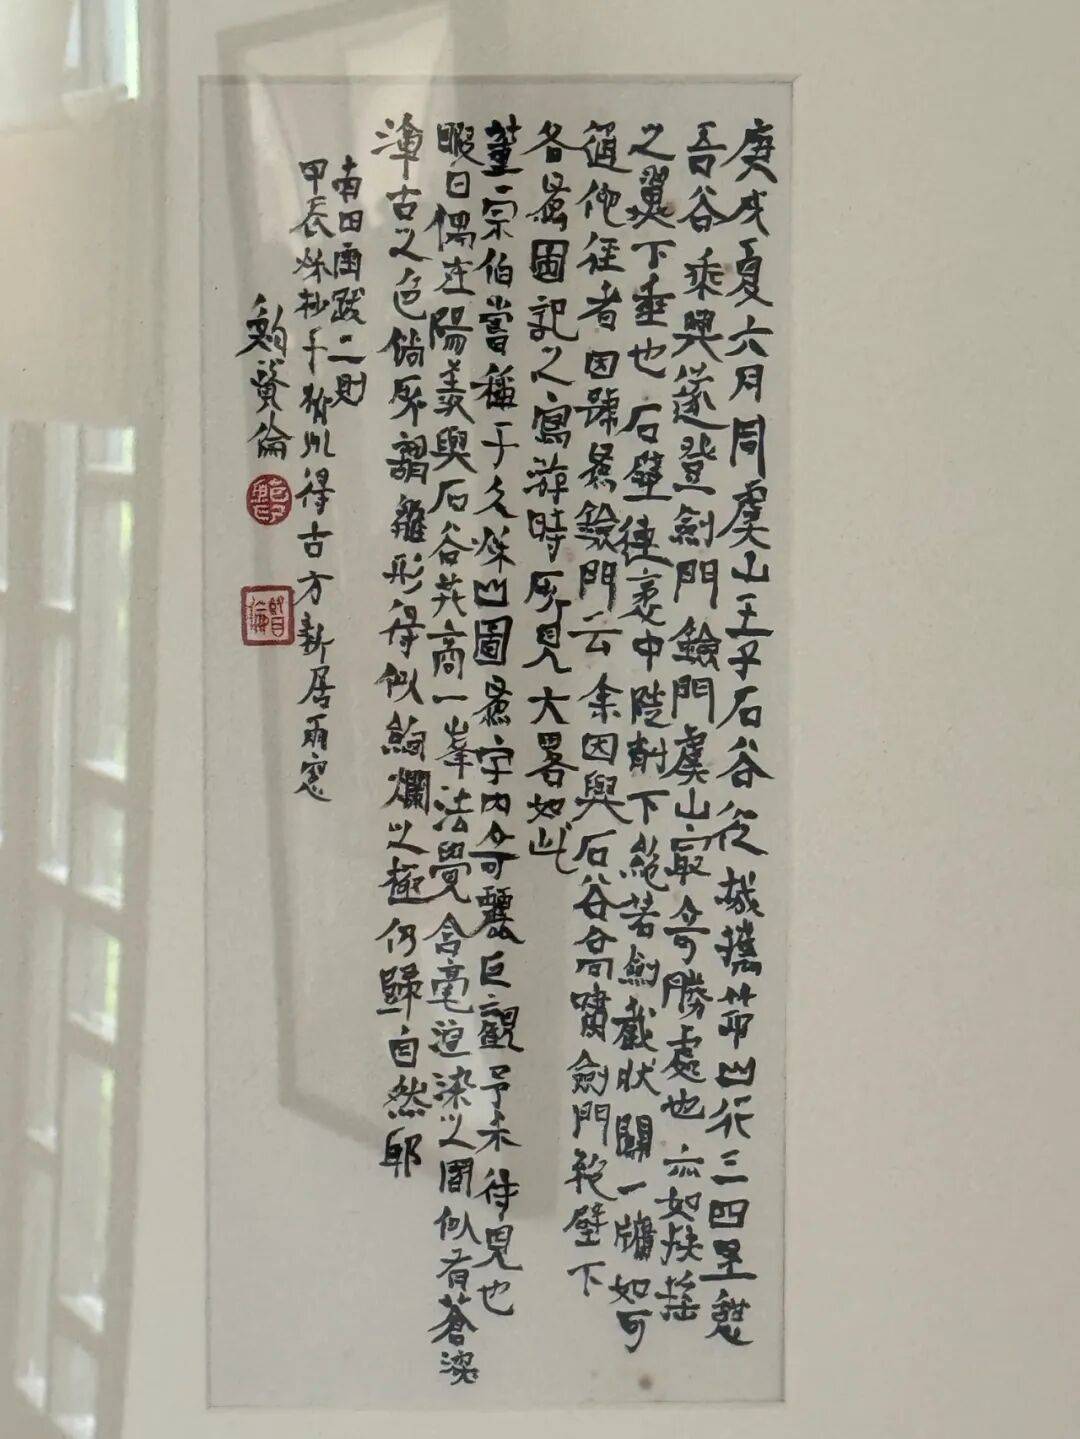 庚戌夏六月同虞山王子石谷從城攜筇山行三四里憩
吾谷乘興遂登劍門鐱門虞山最奇勝處也亦如扶搖
之翼下垂也石壁連袤中陡削下絕若劍截狀闢一牖如可
通他徑者因號爲鐱門云余因與石谷高嘯劍門絕壁下
各爲圖記之寫遊時所見大畧如此
董宗伯嘗稱子久秋山圖爲宇內奇麗巨觀予未得見也
暇日偶在陽羨與石谷共商一峯法覺含毫渲染之間似有蒼深
渾古之色倘所謂離形得似絢爛之極仍歸自然耶
南田畫跋二則
甲辰秋抄于州得古方新居雨窗
鮑賢倫
鮑印
賢倫